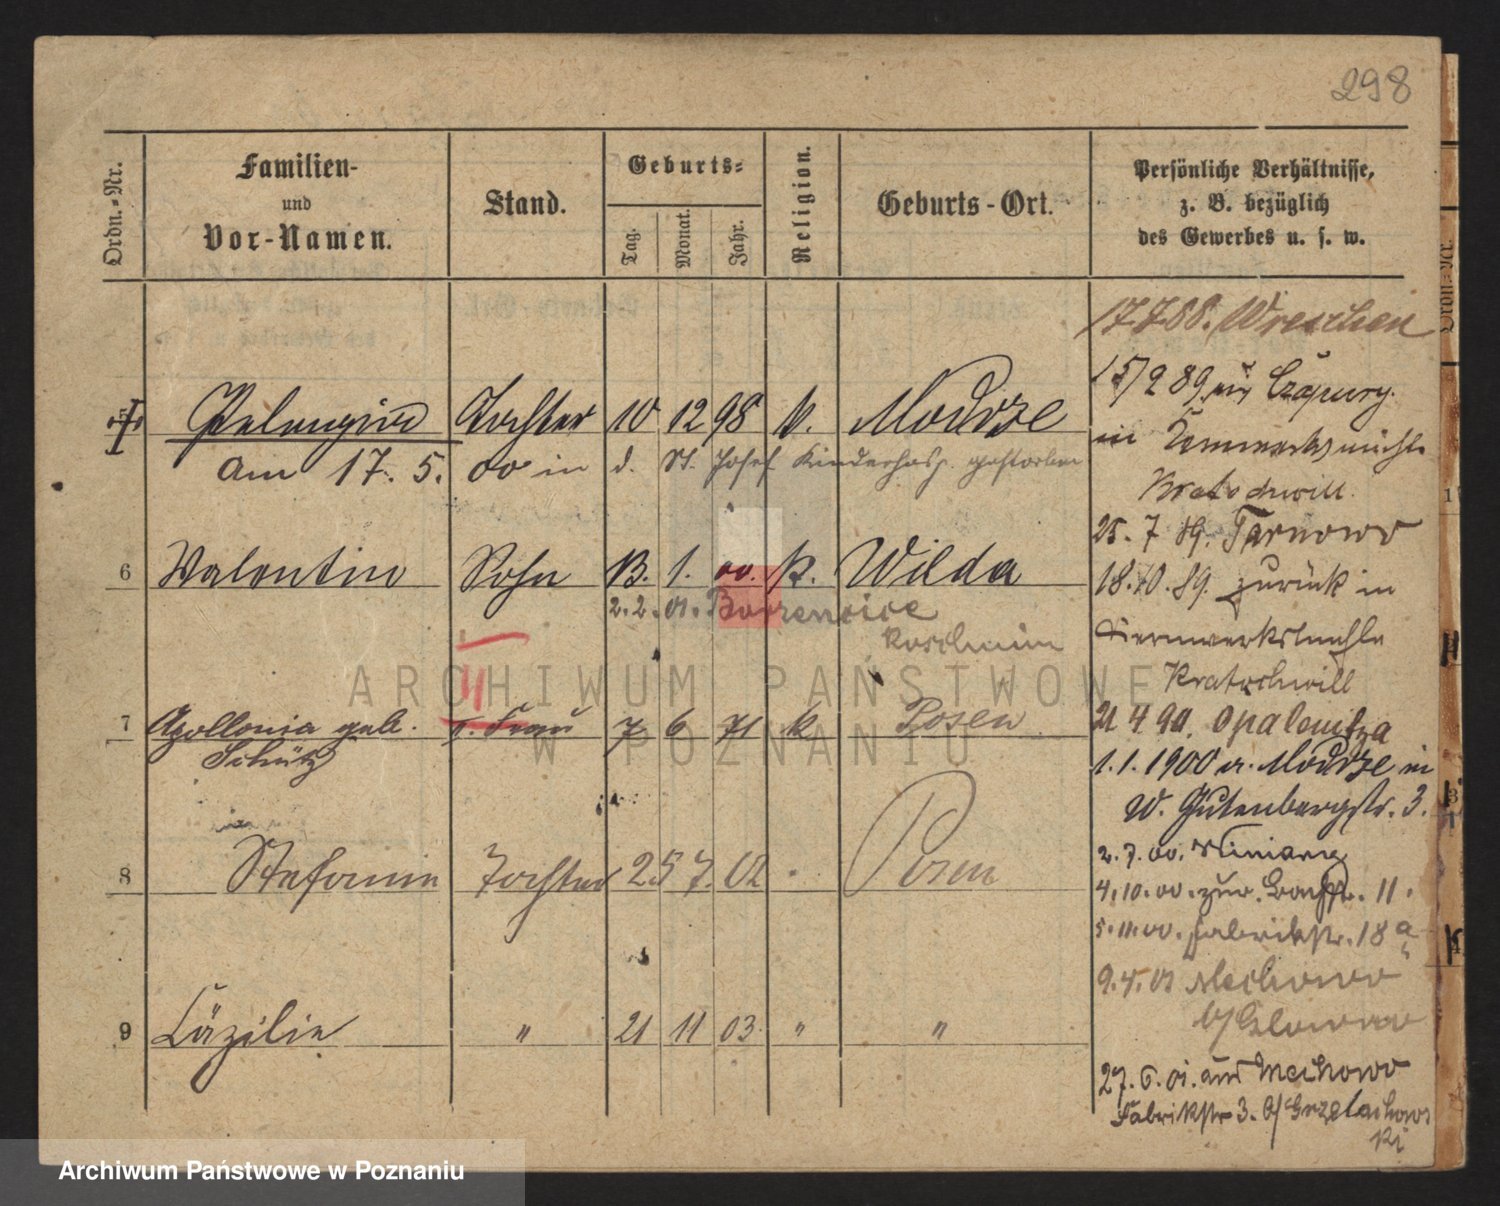 298
Ordn.-Nr.
Familien-
und
Vor-Namen.
Stand.
Geburts-
Tag.
Monat.
Jahr.
Religion.
Geburts-Ort.
Persönliche Verhältnisse,
z. B. bezüglich
des Gewerbes u. s. w.
5 Pelagia Tochter 10 12 98 k. Modrze
am 17. 5. 00 in d. St. Josef Kinderhosp. gestorben
6 Valentin Sohn 13. 1. 00. k. Wilda
2. 2. 01. Borzencice
Koschmin
II
7 Apollonia geb. s. Frau 7 6 71 k Posen
Schütz
8 Stefanie Tochter 25 7. 02 Posen
9 Cäzilie " 21 11 03 " "
17 7 88. Wreschen
15/2 89 in
in
Kratochwill.
25. 7 89. Tarnowo
18. 10. 89. zurück in
Kratochwill
21 4 90. Opalenitza
1. 1. 1900 v. Modrze in
W. Gutenbergstr. 3.
2. 7. 00. Winiary
4. 10. 00. zur. 11.
5. 11. 00. Fabrikstr. 18 a
9. 4. 01 Mechowo
b/
27. 6. 01. aus Mechowo
Fabrikstr 3. b/ Grzelachows
ki
ARCHIWUM PAŃSTWOWE
W POZNANIU
Archiwum Państwowe w Poznaniu